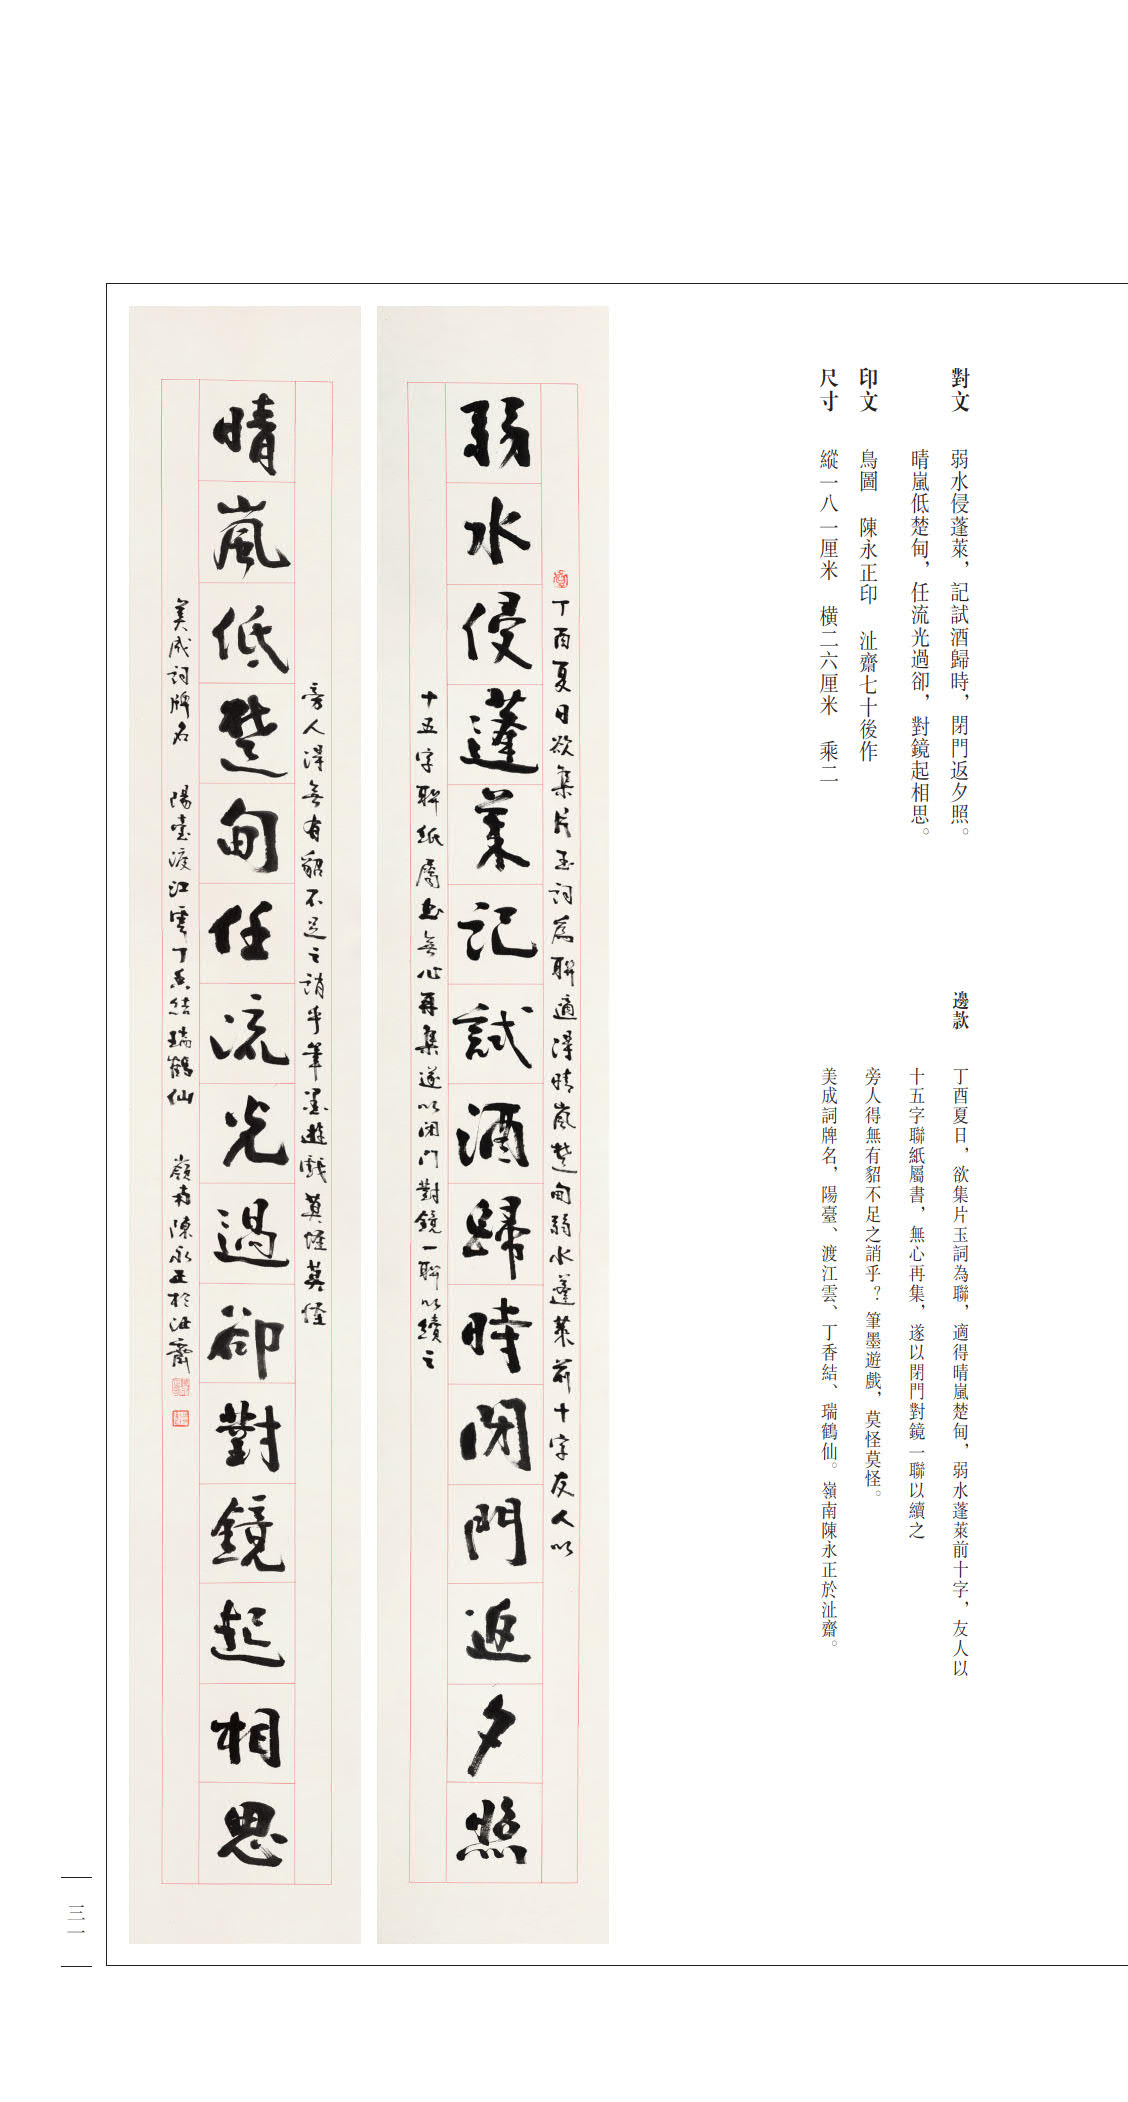 對文
弱水侵蓬萊，記試酒歸時，閉門返夕照。
晴嵐低楚甸，任流光過卻，對鏡起相思。
印文 鳥圖 陳永正印 沚齋七十後作
尺寸 縱一八一厘米 橫二六厘米 乘二
邊款
丁酉夏日，欲集片玉詞為聯，適得晴嵐楚甸，弱水蓬萊前十字，友人以
十五字聯紙屬書，無心再集，遂以閉門對鏡一聯以續之
旁人得無有貂不足之誚乎？筆墨遊戲，莫怪莫怪。
美成詞牌名，陽臺、渡江雲、丁香結、瑞鶴仙。嶺南陳永正於沚齋。
丁酉夏日欲集片玉詞為聯適得晴嵐楚甸弱水蓬萊前十字友人以
弱水侵蓬萊記試酒歸時閉門返夕照
十五字聯紙屬書無心再集遂以閉門對鏡一聯以續之
旁人得無有貂不足之誚乎筆墨遊戲莫怪莫怪
晴嵐低楚甸任流光過卻對鏡起相思
美成詞牌名 陽臺渡江雲丁香結瑞鶴仙 嶺南陳永正於沚齋
三一